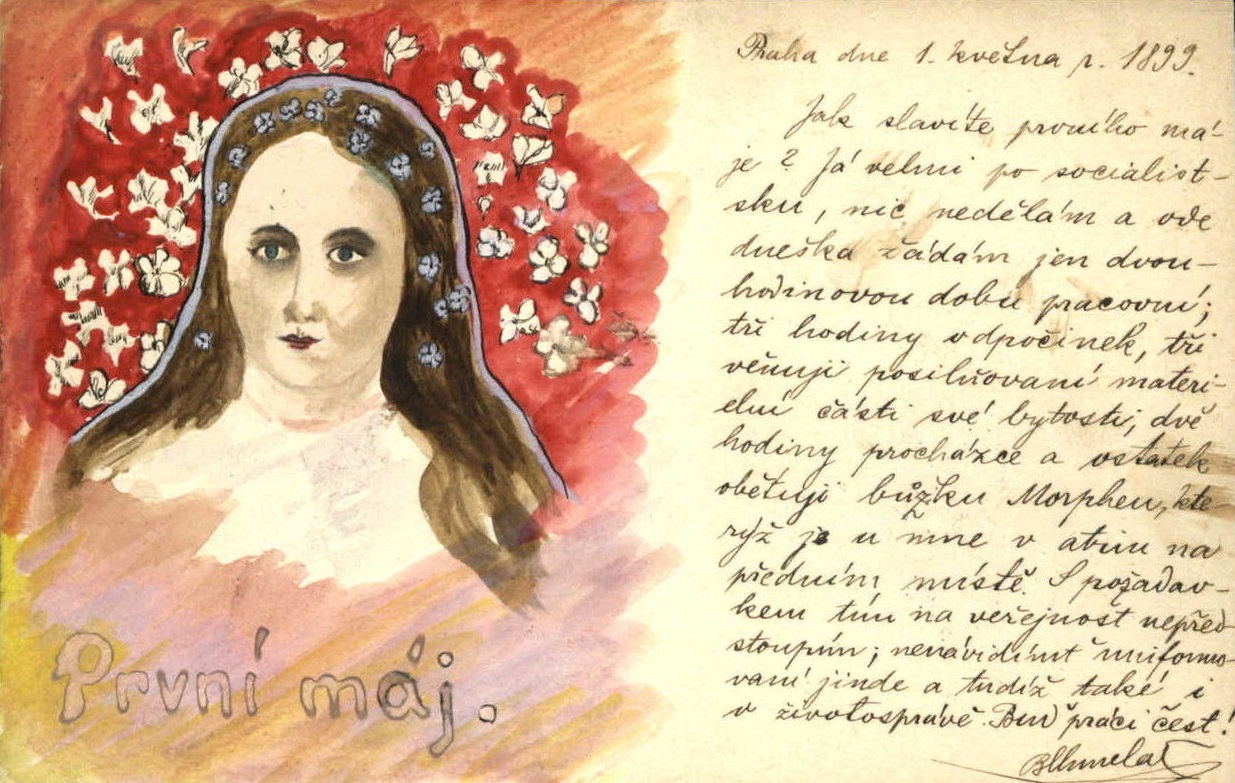 První máj.
Praha dne 1. května r. 1899.
Jak slavíte prvního má-
je? Já velmi po socialist-
sku, nic nedělám a ode
dneška žádám jen dvou-
hodinovou dobu pracovní;
tři hodiny odpočinek, tři
věnuji posilňovaní materi-
elní části své bytosti, dvě
hodiny procházce a ostatek
obětuji bůžku Morpheu, kte-
rýž je u mne v atriu na
předním místě. S požadav-
kem tím na veřejnost nepřed
stoupím; nenávidímť uniformo-
vaní jinde a tudíž také i
v životosprávě. Buď práci čest!